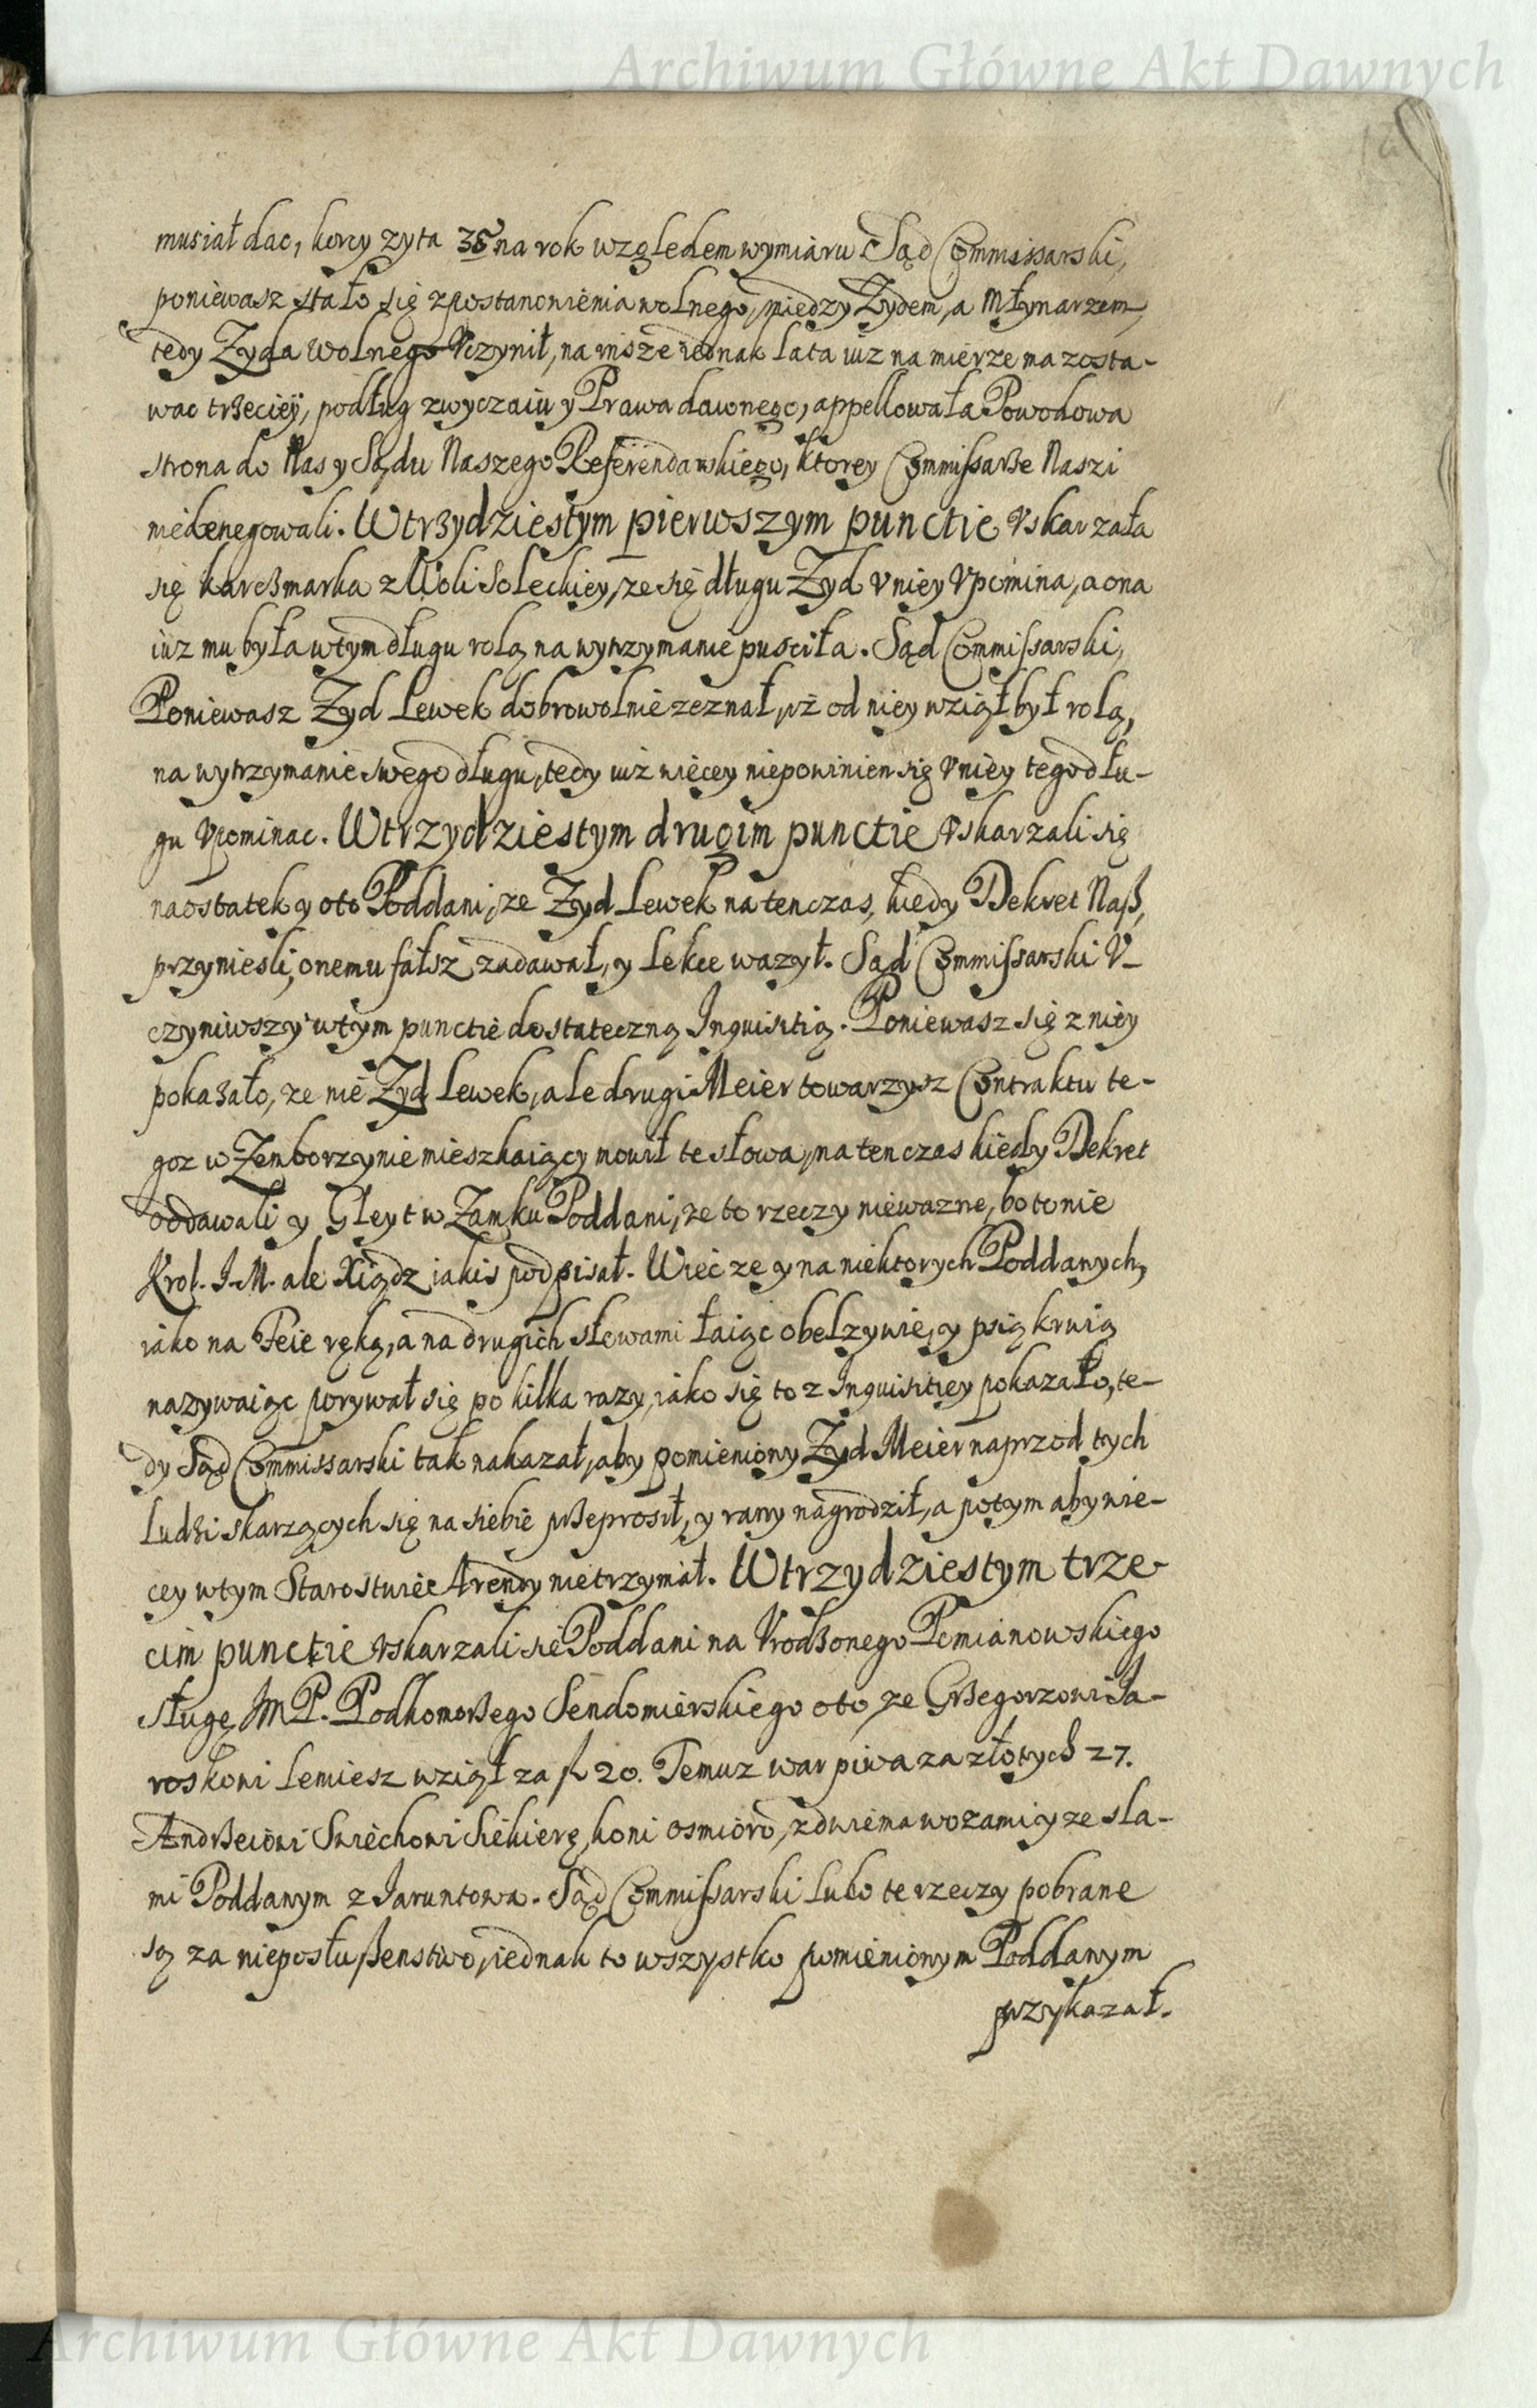 Archiwum Główne Akt Dawnych
musiał dac, korcy zyta 35 na rok względem wymiaru Sąd Commissarski,
poniewasz stało się z postanowienia wolnego, między Zydem, a Młynarzem,
tedy Zyda wolnego Vczynił, na insze iednak lata iuz na mierze ma zosta-
wac trzeciey, podług zwyczaiu y Prawa dawnego, appellowała Powodowa
strona do Nas y Sądu Naszego Referendarskiego, ktorey Commissarze Naszi
niedenegowali. W trzydziestym pierwszym punctie Vskarzała
się karczmarka z Woli Soleckiey, ze się długu Zyd V niey Vpomina, a ona
iuz mu była w tym długu rolą na wytrzymanie pusciła. Sąd Commissarski,
Poniewasz Zyd Lewek dobrowolnie zeznał, yż od niey wziął był rolą,
na wytrzymanie swego długu, tedy iuż więcey niepowinien się V niey tego dłu-
gu Vpominac. W trzydziestym drugim punctie Vskarzali się
naostatek y oto Poddani, ze Zyd Lewek na tenczas, kiedy Dekret Nasz,
przyniesli, onemu fałsz zadawał, y lekce wazył. Sąd Commissarski V-
czyniwszy w tym punctie dostateczną Inquisitią. Poniewasz się z niey
pokazało, ze nie Zyd Lewek, ale drugi Meier towarzysz Contraktu te-
goz w Zemborzynie mieszkaiący mowił te słowa, na tenczas kiedy Dekret
oddawali y Gleyt w Zamku Poddani, ze to rzeczy niewazne, bo to nie
Krol. J. M. ale Xiądz iakis podpisał. Wiec ze y na niektorych Poddanych,
iako na Feie ręką, a na drugich słowami łaiąc obelzywie, y psią krwią
nazywaiąc porywał się po kilka razy, iako się to z Inquisitiey pokazało, te-
dy Sąd Commissarski tak nakazał, aby pomieniony Zyd Meier naprzod tych
ludzi skarzących się na siebie przeprosił, y rany nagrodził, a potym aby wie-
cey w tym Starostwie Arendy nietrzymał. W trzydziestym trze-
cim punctie Vskarzali sie Poddani na Vrodzonego Pomianowskiego
sługę JM P. Podkomorzego Sendomierskiego oto ze Grzegorzowi Ja-
roskowi lemiesz wziął za fl 20. Temuz war piwa za złotych 27.
Andrzeiowi Swiechowi Siekierę, koni osmioro, z dwiema wozami y ze sla-
mi Poddanym z Jaruntowa. Sąd Commissarski lubo te rzeczy pobrane
są za nieposłuszenstwo, iednak to wszystko pomienionym Poddanym
przykazał.
Archiwum Główne Akt Dawnych